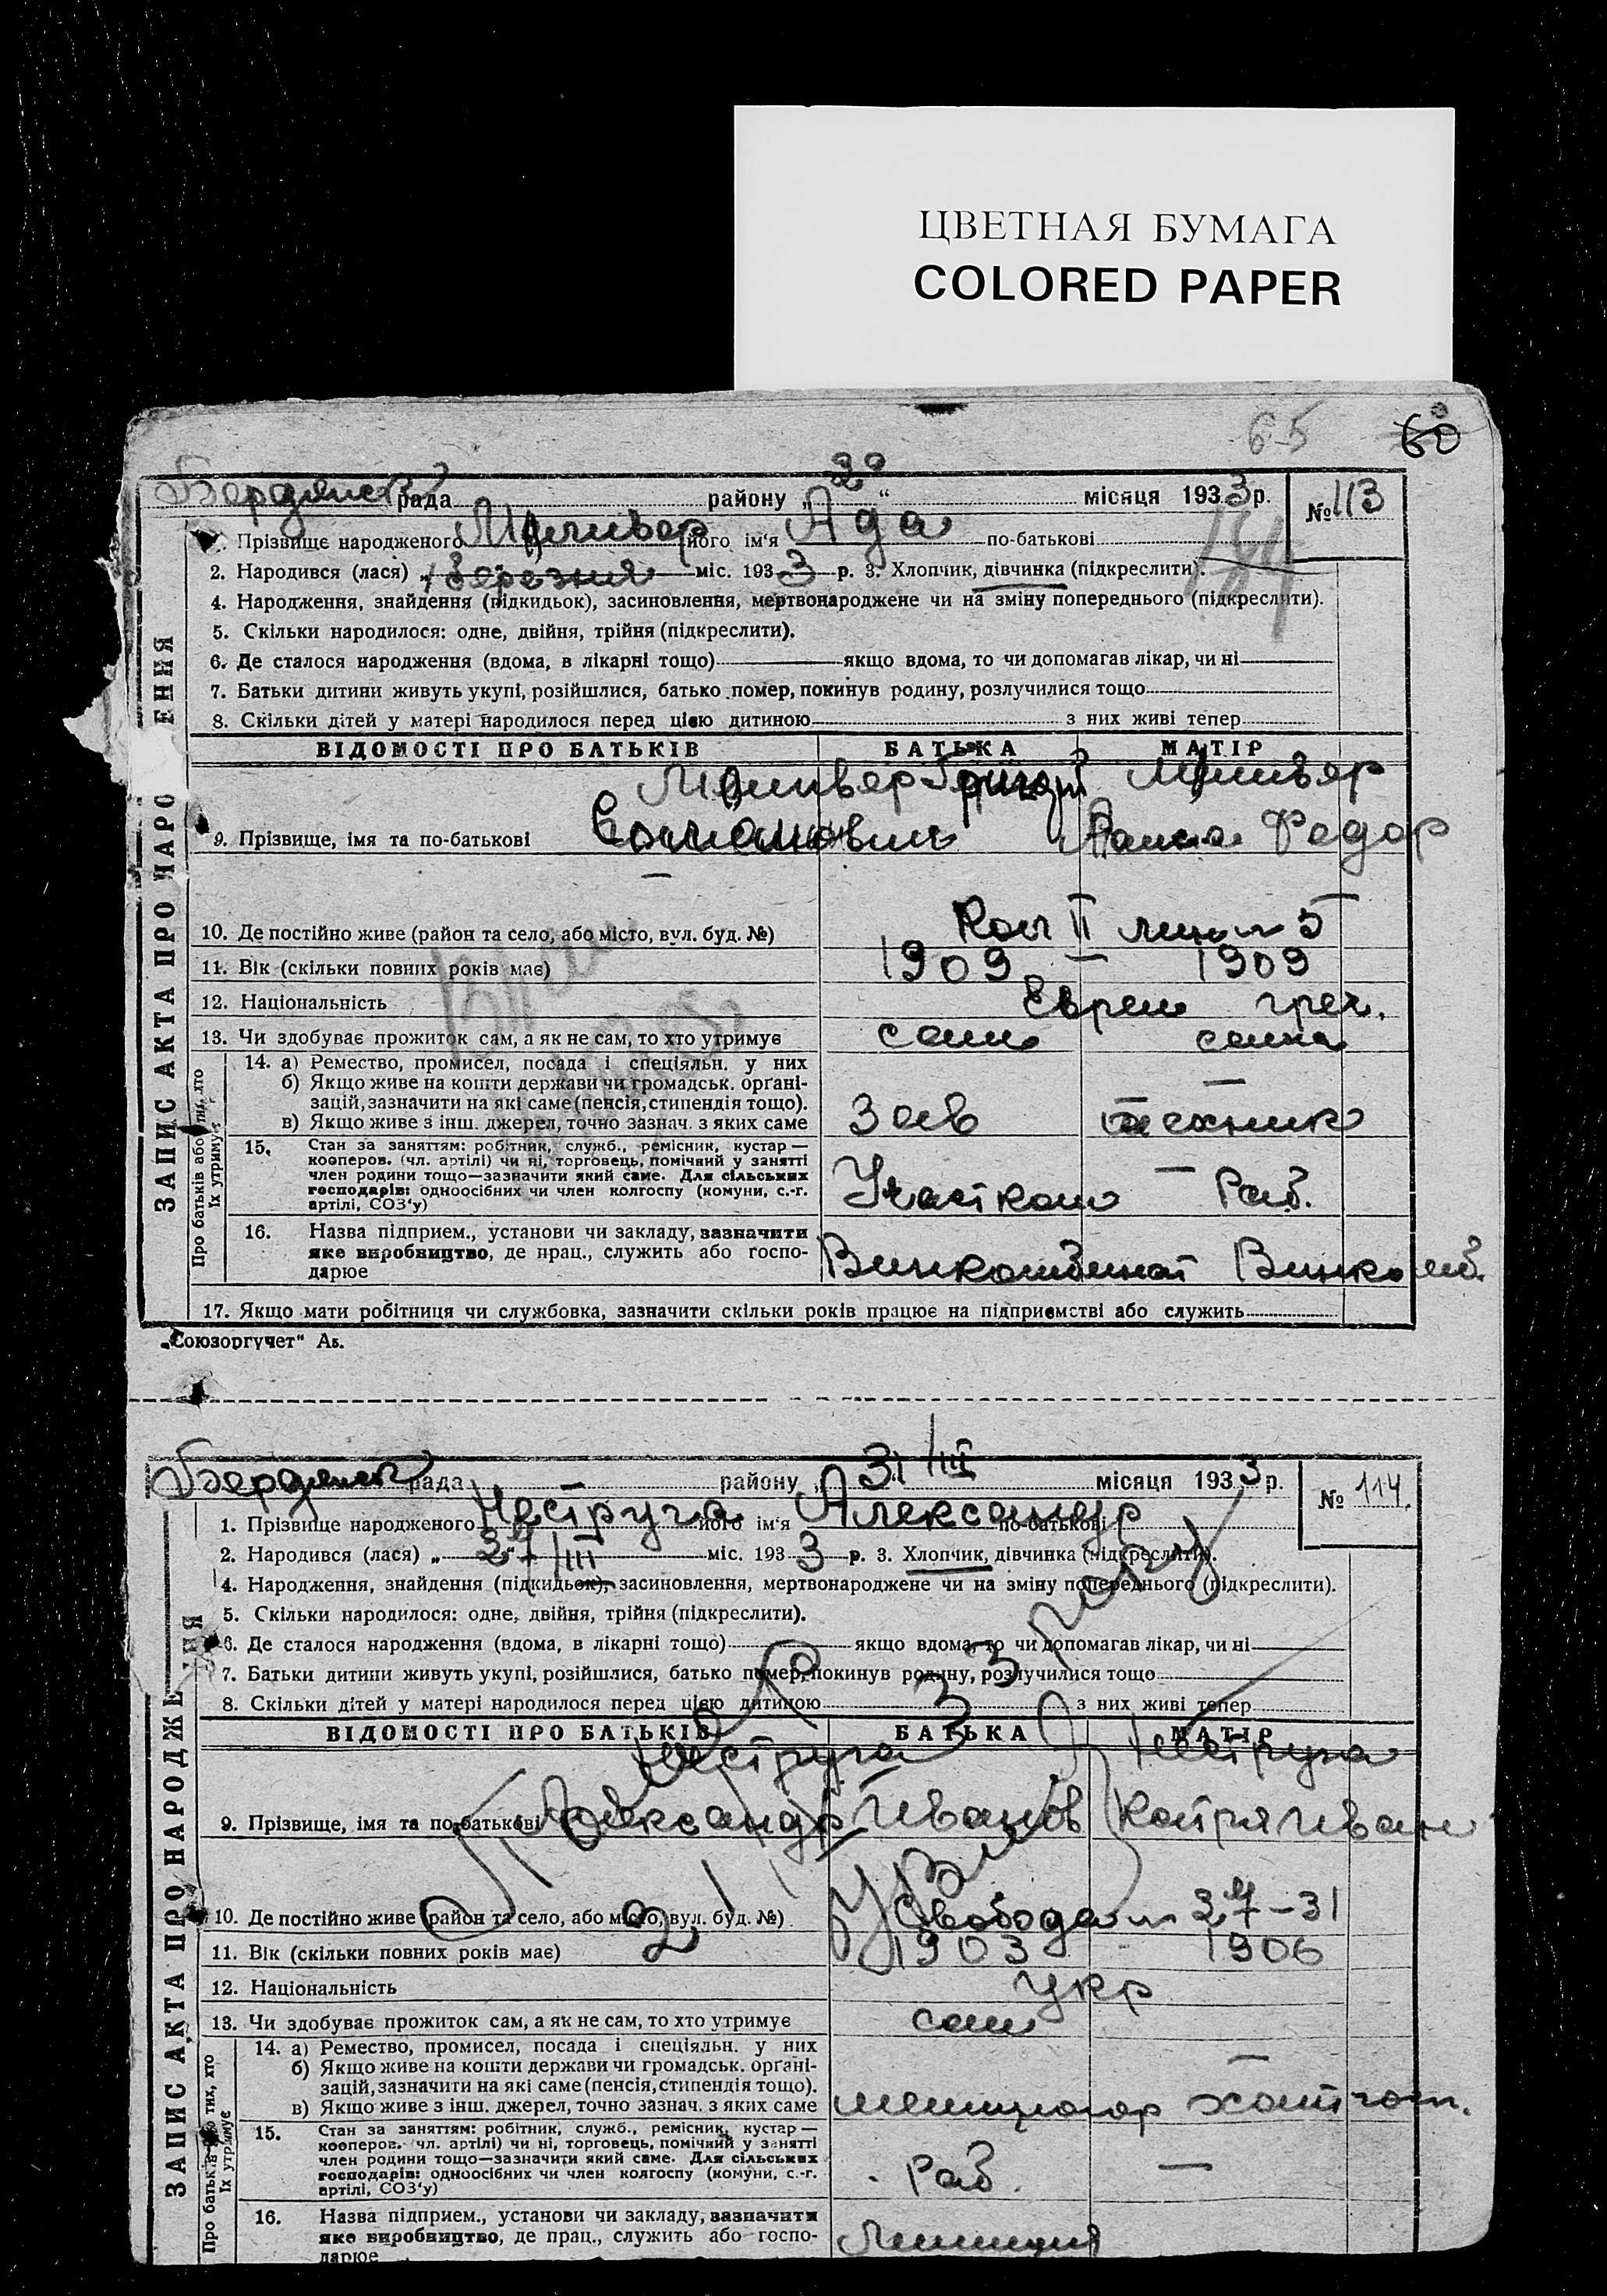 ЦВЕТНАЯ БУМАГА
COLORED PAPER
65 60
Бердянск рада району „ 30 “ місяця 1933 р. № 113
Прізвище народженого його ім‘я Ада по-батькові
2. Народився (лася) „ березня міс. 1933 р. 3. Хлопчик, дівчинка (підкреслити).
4. Народження, знайдення (підкидьок), засиновлення, мертвонароджене чи на зміну попереднього (підкреслити).
5. Скільки народилося: одне, двійня, трійня (підкреслити).
6. Де сталося народження (вдома, в лікарні тощо) якщо вдома, то чи допомагав лікар, чи ні
7. Батьки дитини живуть укупі, розійшлися, батько помер, покинув родину, розлучилися тощо
8. Скільки дітей у матері народилося перед цією дитиною з них живі тепер
ВІДОМОСТІ ПРО БАТЬКІВ БАТЬКА МАТІР
9. Прізвище, імя та по-батькові Федор
10. Де постійно живе (район та село, або місто, вул. буд. №) II 5
11. Вік (скільки повних років має) 1909 — 1909
12. Національність Еврей грек.
13. Чи здобуває прожиток сам, а як не сам, то хто утримує сам сама
14. а) Ремество, промисел, посада і спеціяльн. у них
б) Якщо живе на кошти держави чи громадськ. орґані-
зацій, зазначити на які саме (пенсія, стипендія тощо).
в) Якщо живе з інш. джерел, точно зазнач. з яких саме Зав техник
15. Стан за заняттям: робітник, служб., ремісник, кустар —
кооперов. (чл. артілі) чи ні, торговець, помічний у занятті
член родини тощо—зазначити який саме. Для сільських
господарів: одноосібних чи член колгоспу (комуни, с.-г.
артілі, СОЗ‘у) Участком Раб.
16. Назва підприєм., установи чи закладу, зазначити
яке виробництво, де прац., служить або госпо-
дарює Винкомбинат Винкомб.
17. Якщо мати робітниця чи службовка, зазначити скільки років працює на підприємстві або служить
ЗАПИС АКТА ПРО НАРО ЕННЯ
Про батьків або тих, хто
їх утримує
„Союзоргучет“ Аз.
Бердянск рада району „ 31/III місяця 1933 р. № 114.
1. Прізвище народженого Неструга його ім‘я Александр по-батькові
2. Народився (лася) „ 27/III міс. 1933 р. 3. Хлопчик, дівчинка (підкреслити).
4. Народження, знайдення (підкидьок), засиновлення, мертвонароджене чи на зміну попереднього (підкреслити).
5. Скільки народилося: одне, двійня, трійня (підкреслити).
6. Де сталося народження (вдома, в лікарні тощо) якщо вдома, то чи допомагав лікар, чи ні
7. Батьки дитини живуть укупі, розійшлися, батько помер, покинув родину, розлучилися тощо
8. Скільки дітей у матері народилося перед цією дитиною з них живі тепер
ВІДОМОСТІ ПРО БАТЬКІВ БАТЬКА МАТІР
Неструга Неструга
9. Прізвище, імя та по-батькові Александр Иванов Катря Иван
10. Де постійно живе (район та село, або місто, вул. буд. №) Свобода 27-31
11. Вік (скільки повних років має) 1903 1906
12. Національність Укр
13. Чи здобуває прожиток сам, а як не сам, то хто утримує сам
14. а) Ремество, промисел, посада і спеціяльн. у них
б) Якщо живе на кошти держави чи громадськ. орґані-
зацій, зазначити на які саме (пенсія, стипендія тощо).
в) Якщо живе з інш. джерел, точно зазнач. з яких саме
15. Стан за заняттям: робітник, служб., ремісник, кустар —
кооперов. чл. артілі) чи ні, торговець, помічний у занятті
член родини тощо—зазначити який саме. Для сільських
господарів: одноосібних чи член колгоспу (комуни, с.-г.
артілі, СОЗ‘у) Раб. —
16. Назва підприєм., установи чи закладу, зазначити
яке виробництво, де прац., служить або госпо-
дарює
ЗАПИС АКТА ПРО НАРОДЖЕ ННЯ
Про батьків або тих, хто
їх утримує